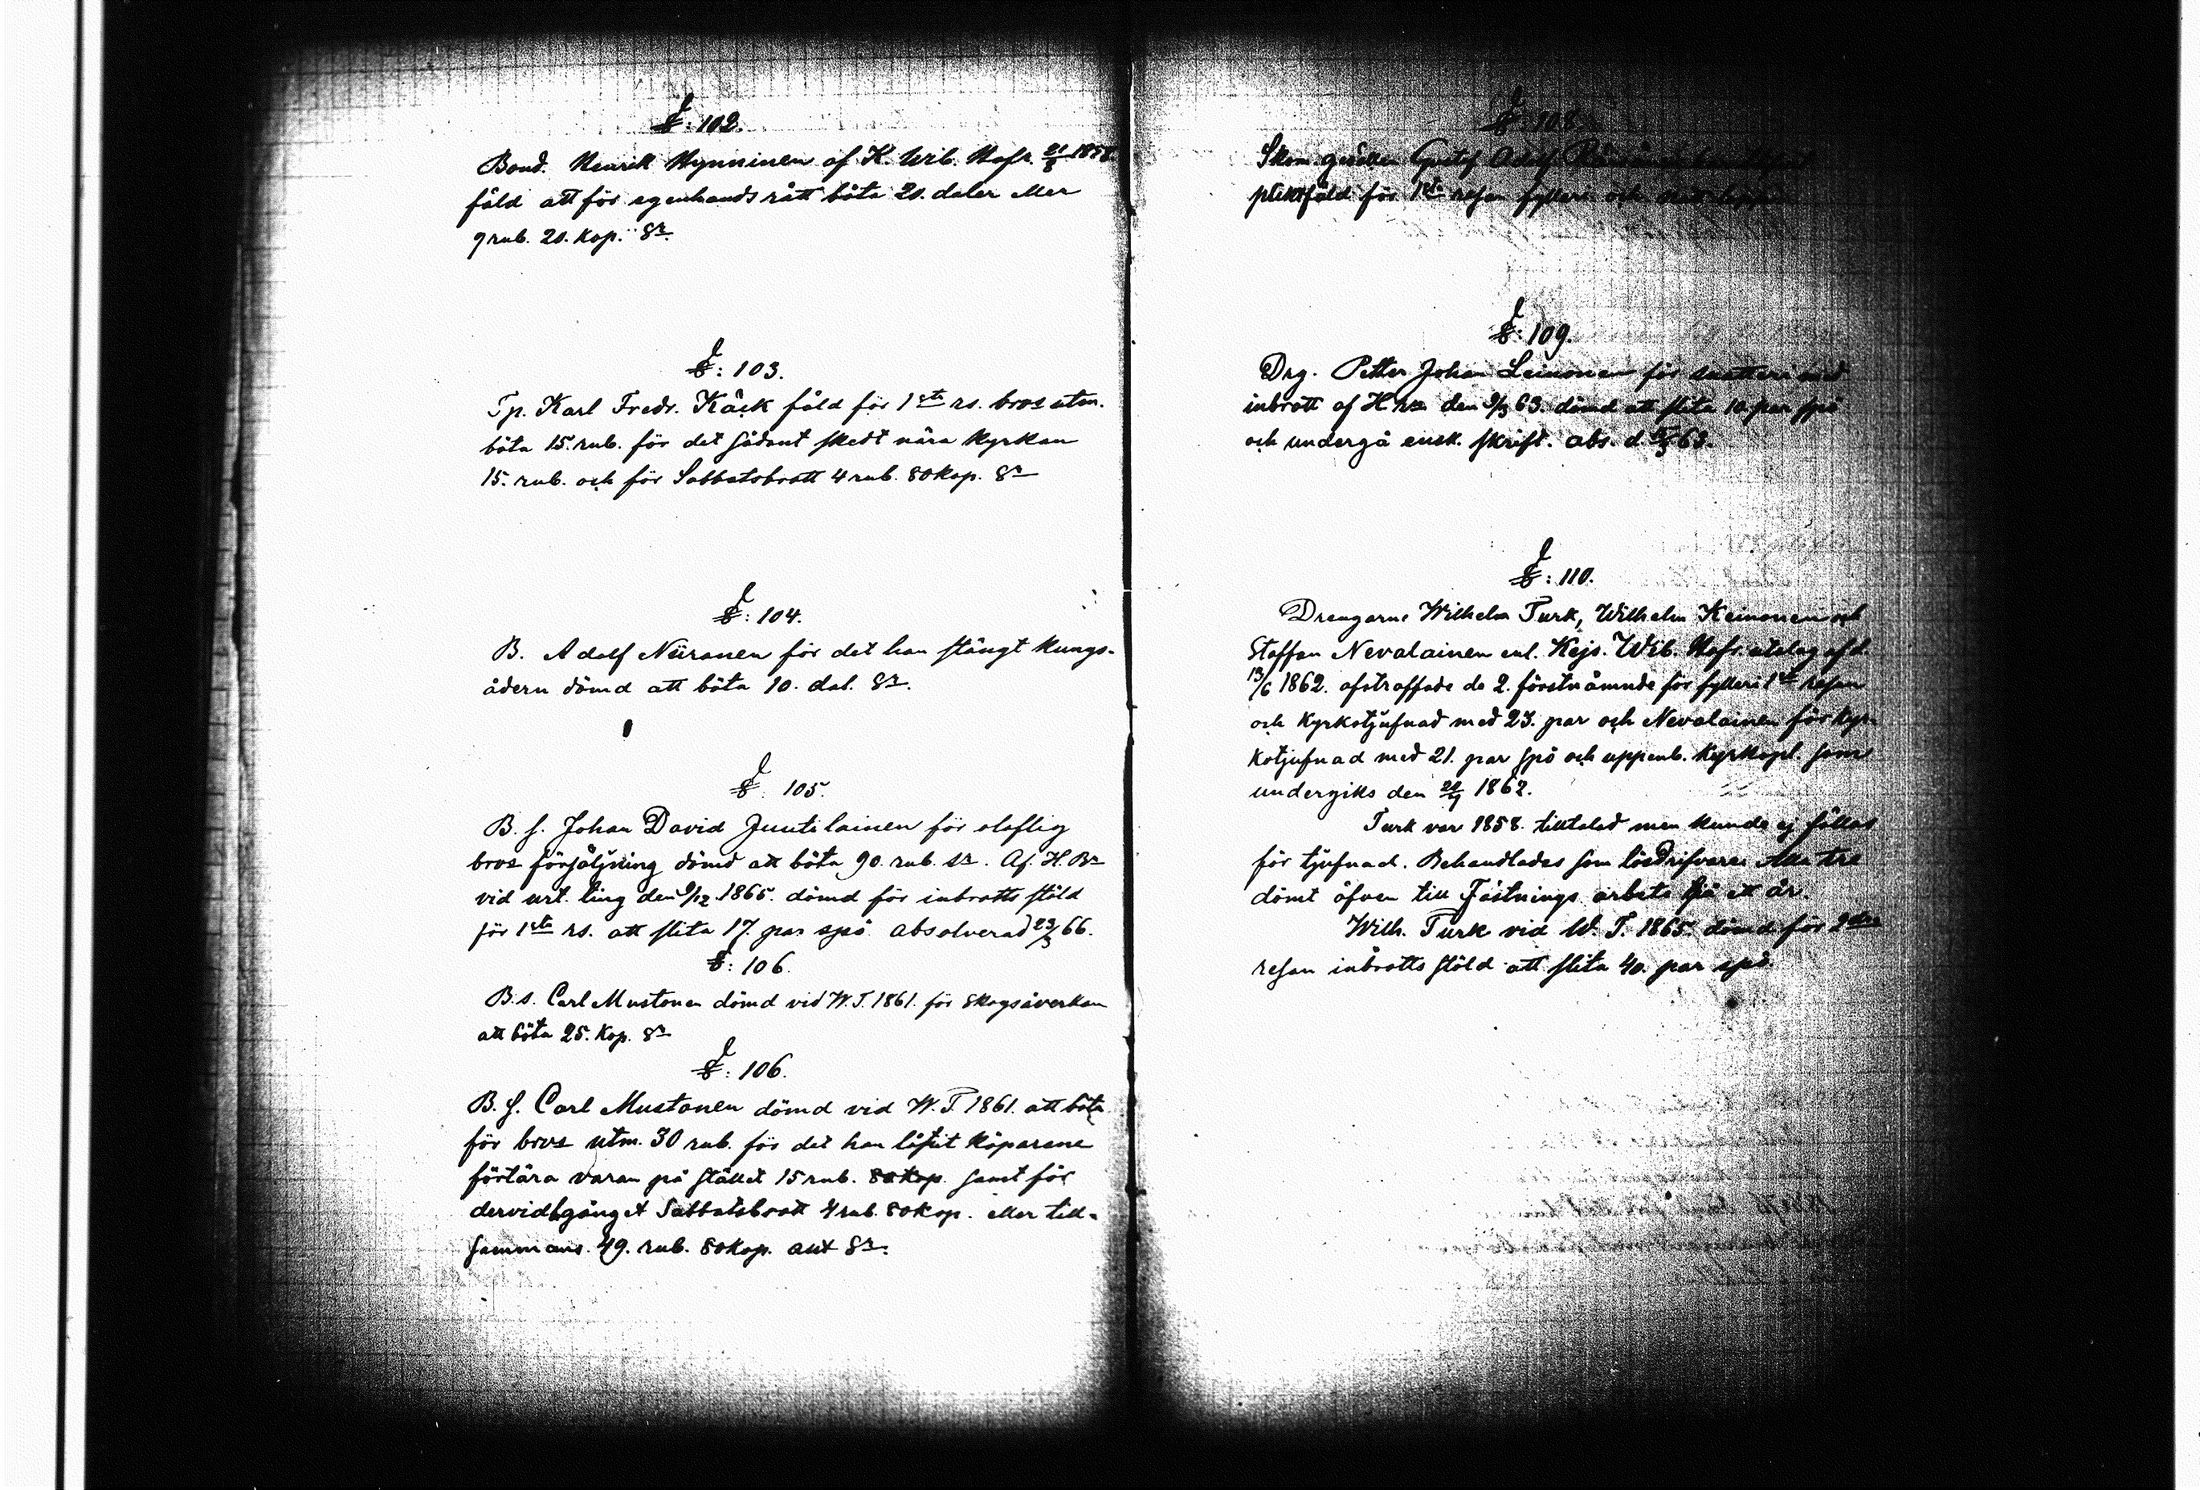 §: 102.
Bond. Henrik Hynninen af K. Wib. Hofr. 21/5 1858
fäld att för egenhands rätt böta 20. daler eller
9 rub. 20. kop. Sr.
§: 103.
Tp. Karl Fredr. Käck fäld för 1sta rs. bros utm.
böta 15. rub. för det sådant skedt nära Kyrkan
15. rub. och för Sabbatsbrott 4 rub. 80 kop. Sr
§: 104.
B. Adolf Niiranen för det han stängt Kungs-
ådern dömd att böta 10. dal. Sr.
§: 105.
B. s. Johan David Juutilainen för olaflig
bros försäljning dömd att böta 90. rub. sr. Af H. Rr
vid url. ting den 9/12 1865. dömd för inbrotts stöld
för 1sta rs. att slita 17. par spö absolverad 23/3 66.
§: 106.
B. s. Carl Mustonen dömd vid W. T. 1861. för Skogsåverkan
att böta 25. kop. Sr
§: 106.
B. s. Carl Mustonen dömd vid W. T. 1861. att böta
för bros utm. 30 rub. för det han låtit köparene
förtära varan på stället 15 rub. 80 kop. samt för
dervid begånget Sabbatsbrott 4 rub. 80 kop. eller till-
sammans 49. rub. 80 kop. allt Sr.
§: 108.
Skom. gesällen Gustaf Adolf
pliktfäld för 1sta resan fylleri och
§: 109.
Drg. Petter Johan Leinonen för snatteri med
inbrott af H rn den 9/3 63. dömd att slita 10. par spö
och undergå ensk. skrift. abs. d. 63.
§: 110.
Drengarne Wilhelm Turk, Wilhelm Keinonen och
Staffan Nevalainen enl. Kejs. Wib. Hofr. utslag af d.
13/6 1862. afstraffade de 2. förstnämnde för fylleri 1sta resan
och kyrkotjufnad med 23. par och Nevalainen för kyr-
kotjufnad med 21. par spö och uppenb. kyrkopl. som
undergiks den 1862.
Turk var 1858. tilltalad men kunde ej fällas
för tjufnad. Behandlades som lösdrifvare Alla tre
dömt äfven till Fästnings arbete på ett år.
Wilh. Turk vid W. T. 1865. dömd för 2dra
resan inbrotts stöld att slita 40. par spö.